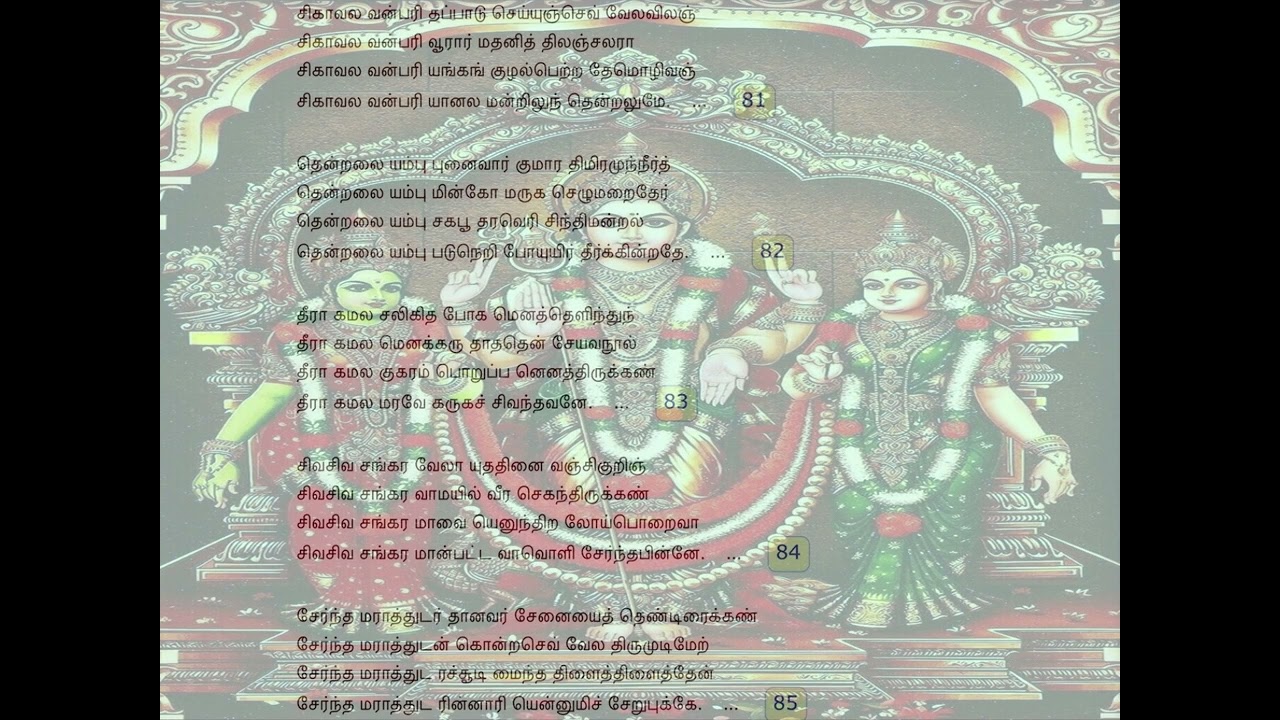 சிகாவல வன்பரி தப்பாடு செய்யுஞ்செவ் வேலவிலஞ்
சிகாவல வன்பரி வூரார் மதனித் திலஞ்சலரா
சிகாவல வன்பரி யங்கங் குழல்பெற்ற தேமொழிவஞ்
சிகாவல வன்பரி யானல மன்றிலுந் தென்றலுமே. ... 81
தென்றலை யம்பு புனைவார் குமார திமிரமுந்நீர்த்
தென்றலை யம்பு மின்கோ மருக செழுமறைதேர்
தென்றலை யம்பு சகபூ தரவெரி சிந்திமன்றல்
தென்றலை யம்பு படுநெறி போயுயிர் தீர்க்கின்றதே. ... 82
தீரா கமல சலிகித் போக மெனத்தெளிந்துந்
தீரா கமல மெனக்கரு தாததென் சேயவநூல்
தீரா கமல குகரம் பொறுப்ப னெனத்திருக்கண்
தீரா கமல மரவே கருகச் சிவந்தவனே. ... 83
சிவசிவ சங்கர வேலா யுததினை வஞ்சிகுறிஞ்
சிவசிவ சங்கர வாமயில் வீர செகந்திருக்கண்
சிவசிவ சங்கர மாவை யெனுந்திற லோய்பொறைவா
சிவசிவ சங்கர மான்பட்ட வாவொளி சேர்ந்தபின்னே. ... 84
சேர்ந்த மராத்துடர் தானவர் சேனையைத் தெண்டிரைக்கண்
சேர்ந்த மராத்துடன் கொன்றசெவ் வேல திருமுடிமேற்
சேர்ந்த மராத்துட ரச்சூடி மைந்த திளைத்திளைத்தேன்
சேர்ந்த மராத்துட ரின்னாரி யென்னுமிச் சேறுபுக்கே. ... 85